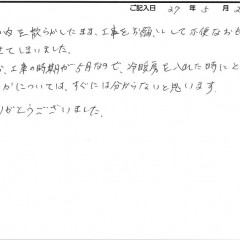 ご記入日 27 年 5 月 2
の内を散らかしたまま、工事をお願いして不便なおも
せてしまいました。
、工事の時期が5月なので、冷暖房を入れた時にど
かについては、すぐには分からないと思います。
りがとうございました。